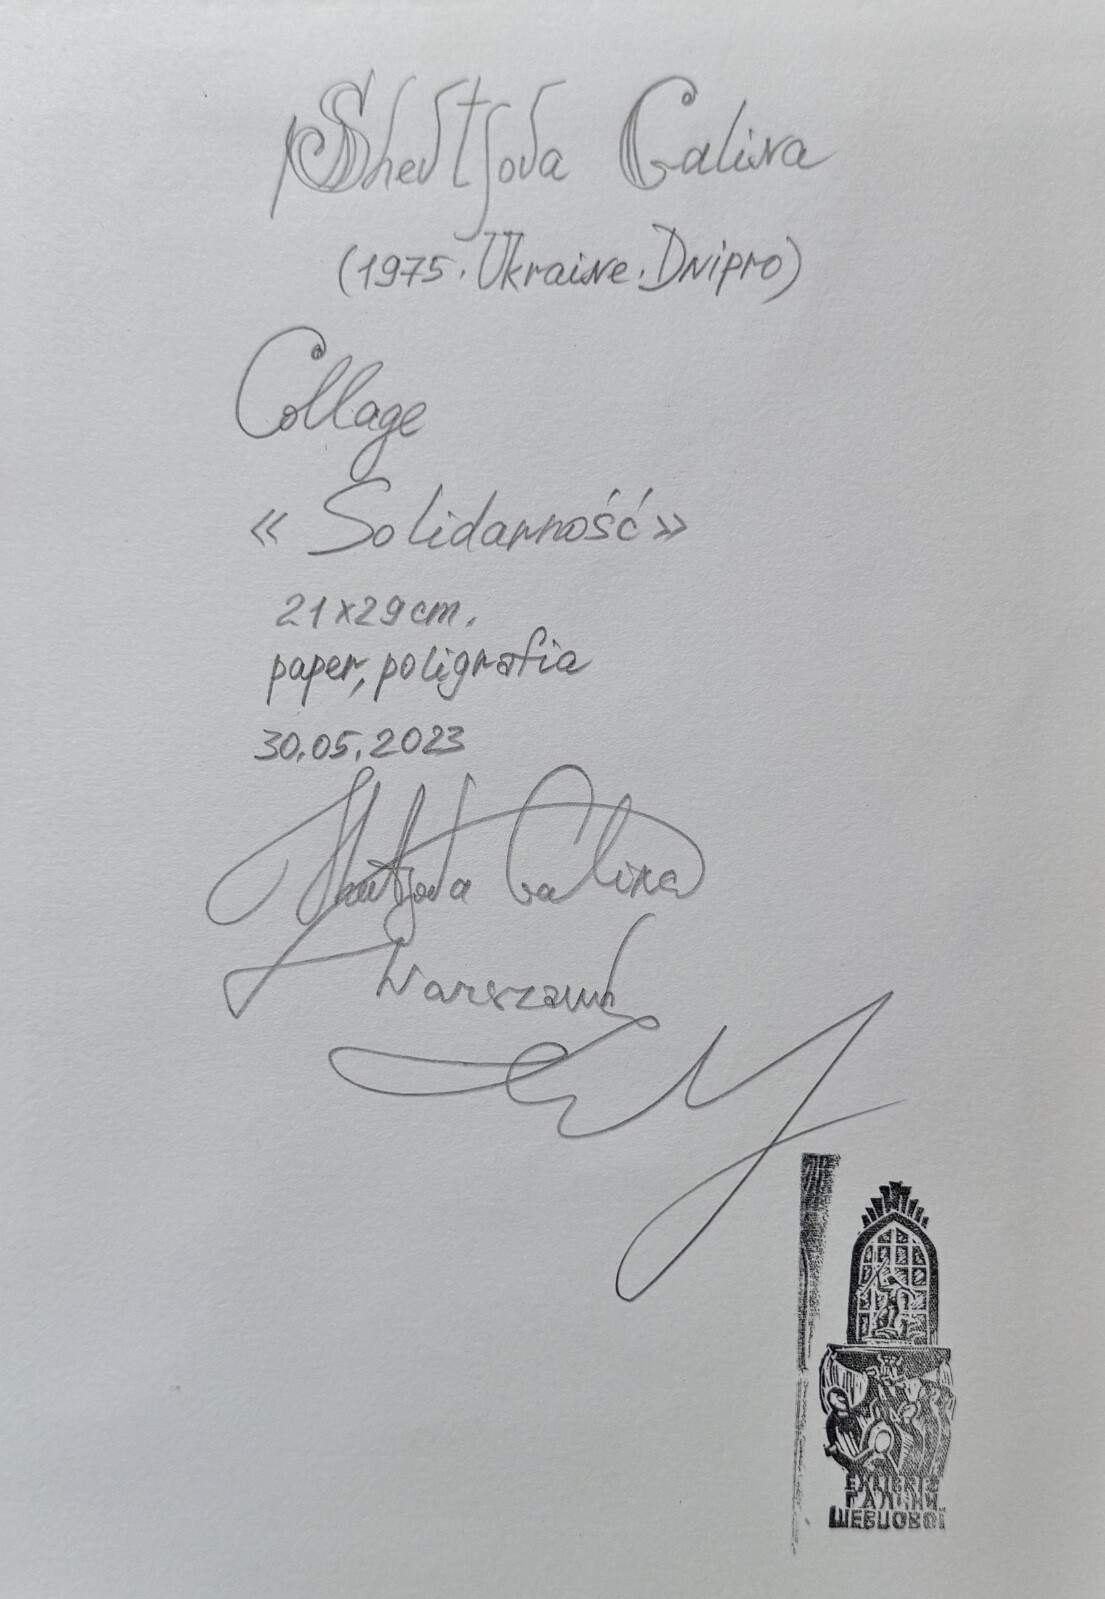 Shevtsova Galina
(1975. Ukraine. Dnipro)
Collage
« Solidarność»
21x29cm.
paper, poligrafia
30.05.2023
Shevtsova Galina
Warszawa
EXLIBRIS
ГАЛИНИ
ШЕВЦОВОЇ